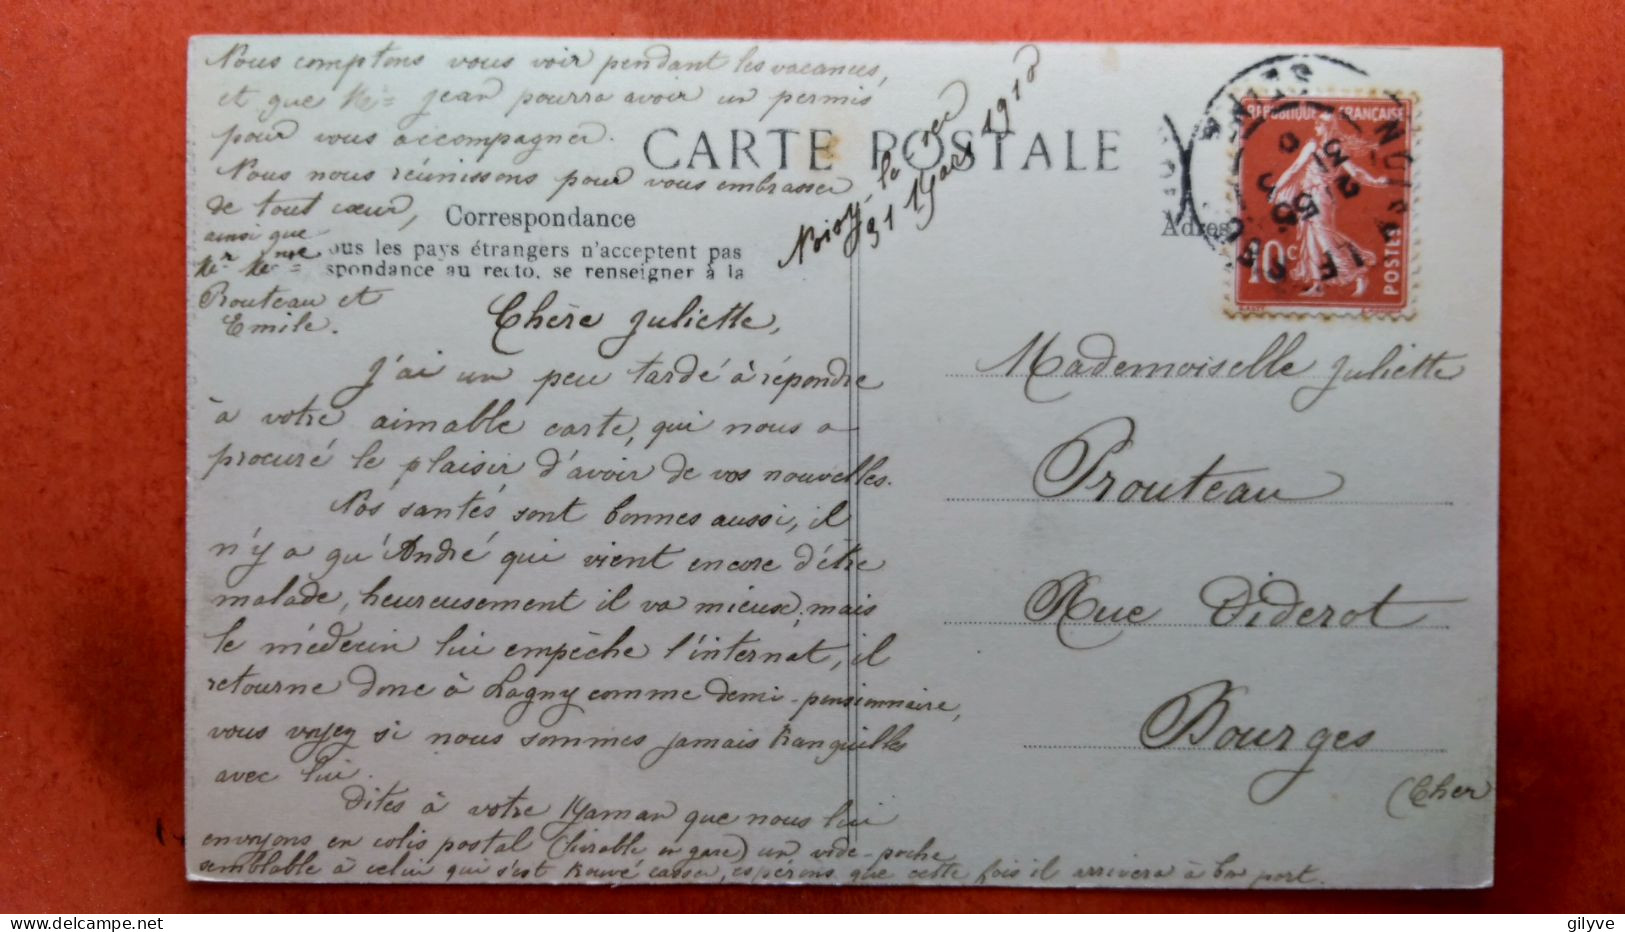 Noisy-le
31 Mars 1910
CARTE POSTALE
Correspondance
ous les pays étrangers n'acceptent pas
spondance au recto, se renseigner à la
Chère Juliette,
J'ai un peu tardé à répondre
à votre aimable carte, qui nous a
procuré le plaisir d'avoir de vos nouvelles.
Nos santés sont bonnes aussi, il
n'y a qu'André qui vient encore d'être
malade, heureusement il va mieux, mais
le médecin lui empêche l'internat, il
retourne donc à Lagny comme demi-pensionnaire,
vous voyez si nous sommes jamais tranquilles
avec lui.
Dites à votre Maman que nous lui
envoyons en colis postal (livrable en gare) un vide-poche
semblable à celui qui s'est trouvé cassé, espérons que cette fois il arrivera à bon port.
Nous comptons vous voir pendant les vacances,
et que Jean pourra avoir un permis
pour vous accompagner.
Nous nous réunissons pour vous embrasser
de tout cœur,
ainsi que
Mr Mme
Prouteau et
Emile.
REPUBLIQUE FRANÇAISE
10c
POSTES
Adres
Mademoiselle Juliette
Prouteau
Rue Diderot
Bourges
(Cher
delcampe.net
gilyve